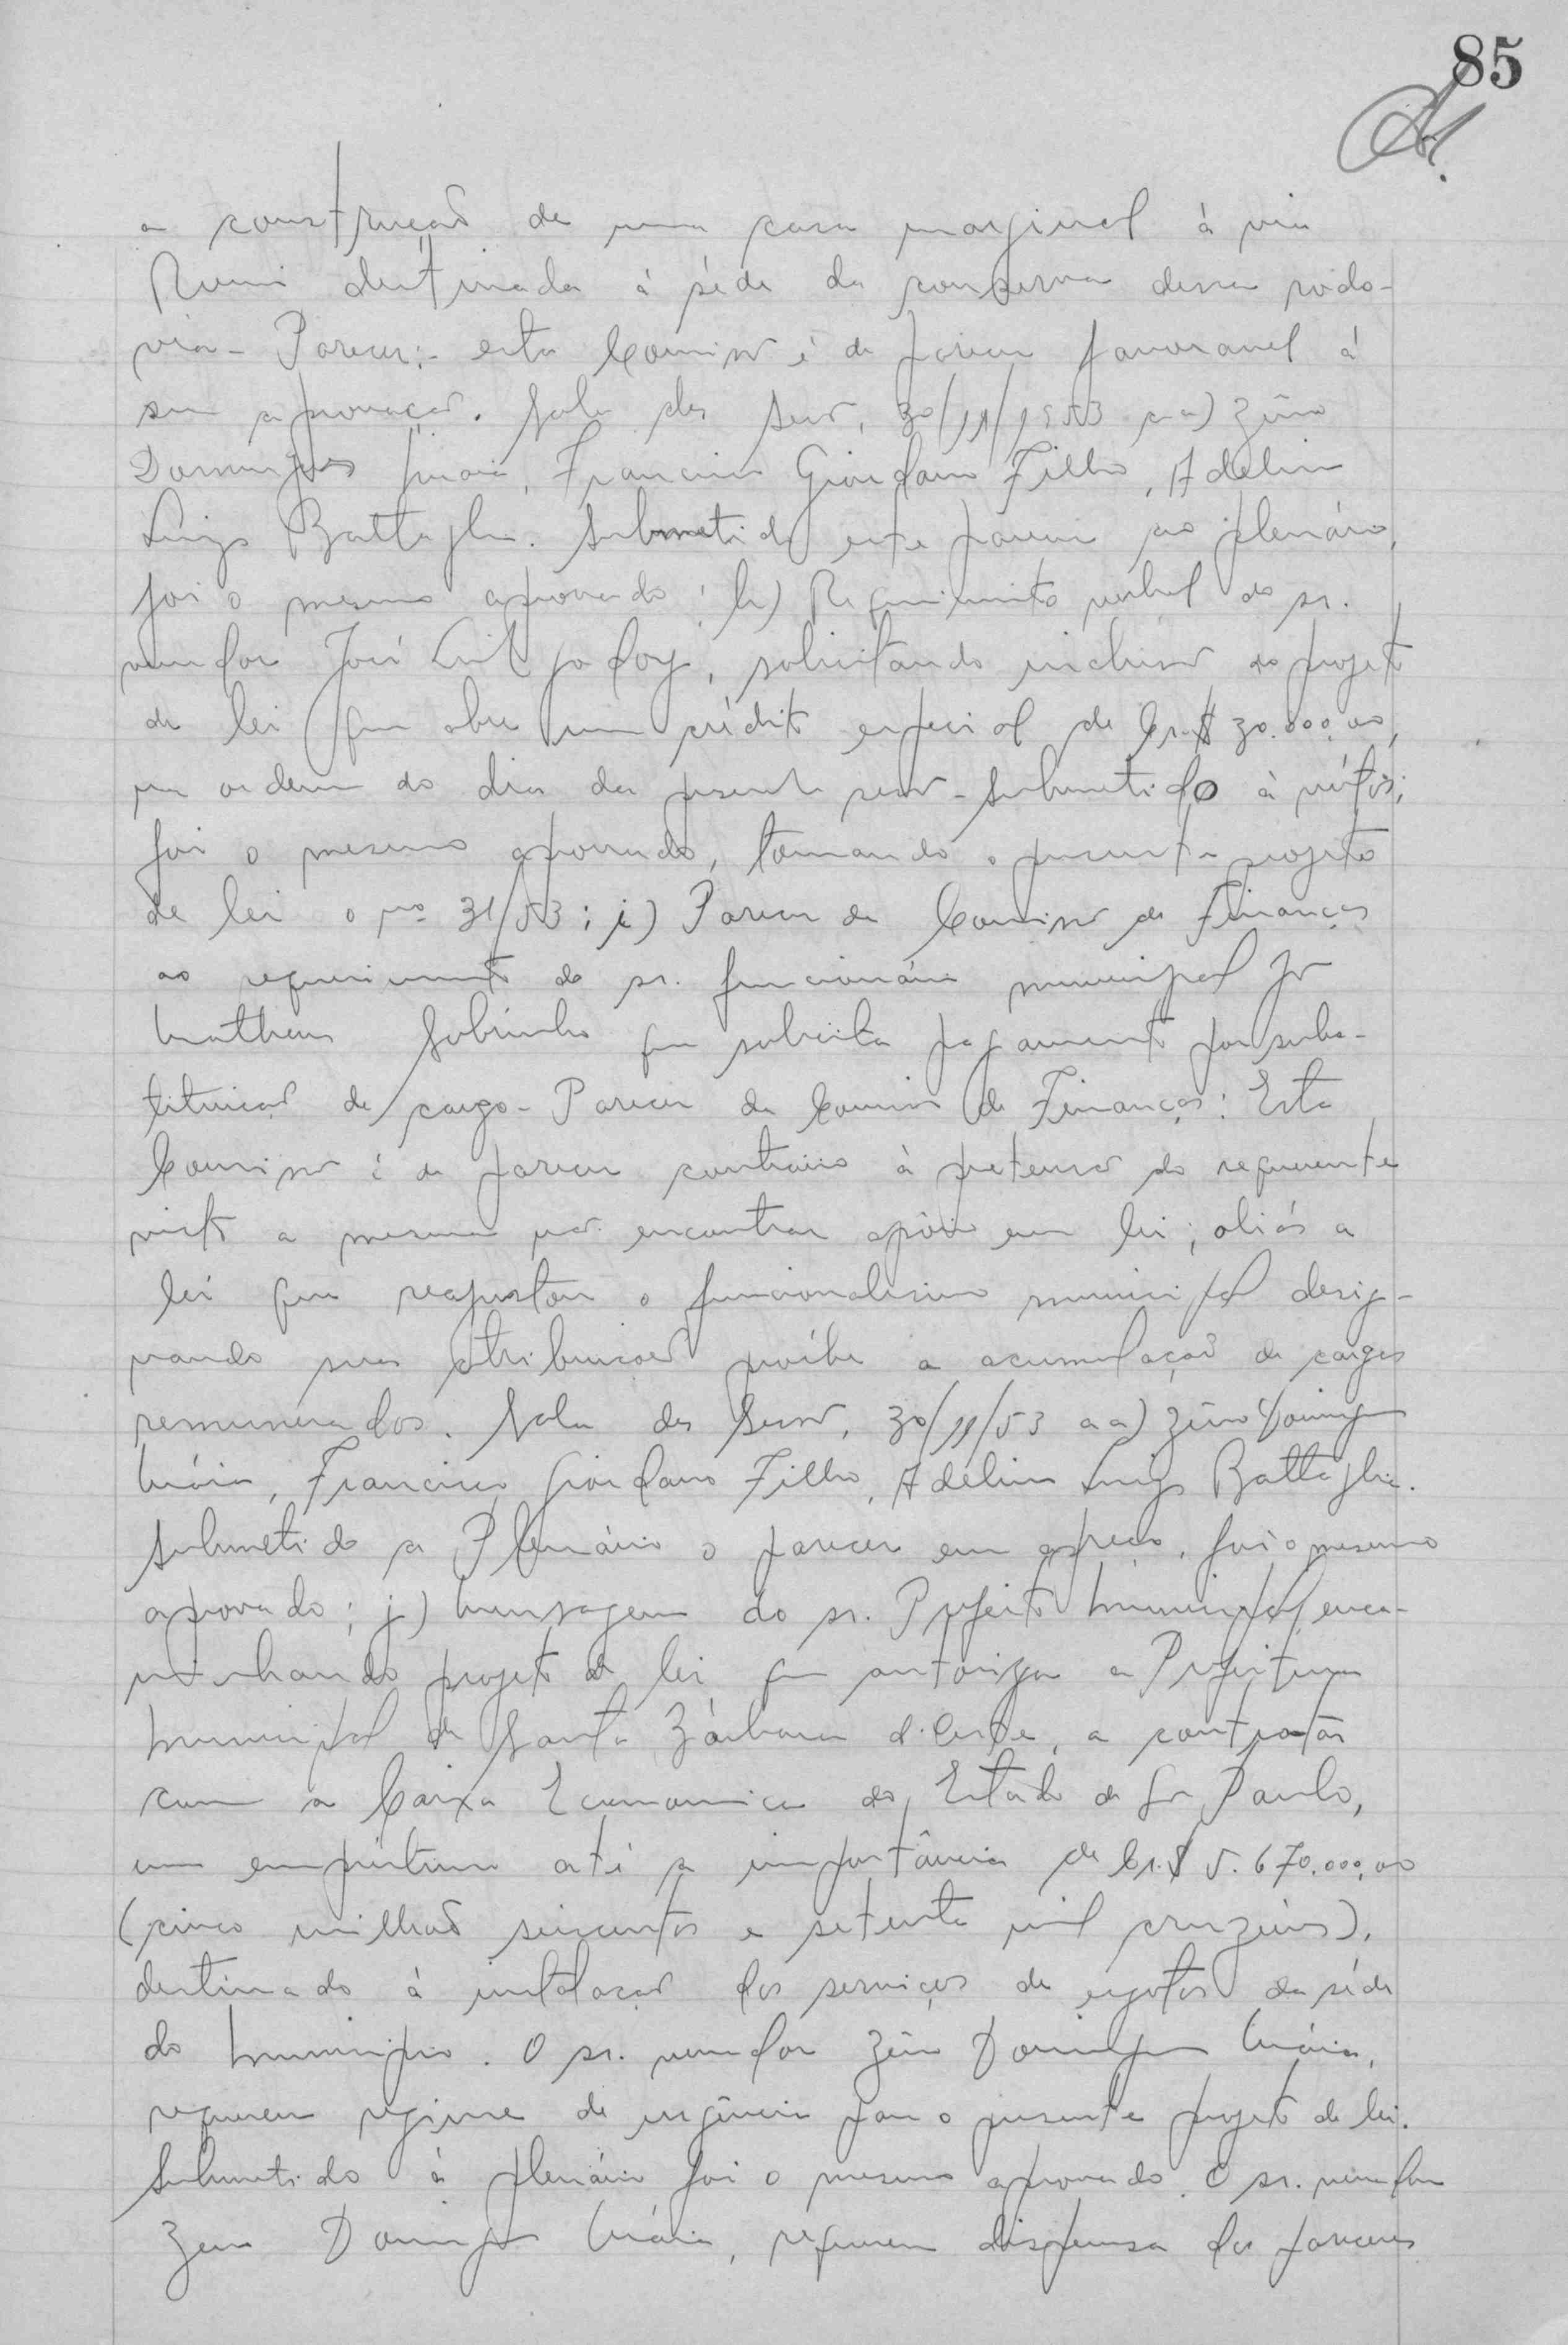 85
a construção de uma casa marginal à via
destinada à séde da conserva dessa rodo-
via - Parecer:- esta Comissão é de parecer favoravel á
sua aprovação. Sala das Sessões, 30/11/1953 aa) Zêno
Domingues Maia, Francisco Giordano Filho, Adelino
Luigo Battaglia. Submetido este parecer ao plenário,
foi o mesmo aprovado; h) Requerimento verbal do sr.
vereador José Luiz Godoy, solicitando inclusão do projeto
de lei que abre um crédito especial de Cr.$ 30.000,00,
na ordem do dia da presente sessão - Submetido à vótos;
foi o mesmo aprovado, tomando o presente projeto
de lei o nº 31/53; i) Parecer da Comissão de Finanças
ao requerimento do sr. funcionário municipal
Matheus Sobrinho que solicita pagamento por subs-
tituição de cargo - Parecer da Comissão de Finanças: Esta
Comissão é de parecer contrário à pretensão do requerente
visto a mesma não encontrar apôio em lei; aliás a
lei que reajustou o funcionalismo municipal desig-
nando suas atribuições proíbe a acumulação de cargos
remunerados. Sala das Sessões, 30/11/53 aa) Zêno Domingues
Máia, Francisco Giordano Filho, Adélino Luigo Battaglia.
Submetido a Plenário o parecer em apreço, foi o mesmo
aprovado; j) Mensagem do sr. Prefeito Municipal, enca-
minhando projeto de lei que autoriza a Prefeitura
Municipal de Santa Bárbara d'Oeste, a contratar
com a Caixa Economica do Estado de São Paulo,
um empréstimo até a importância de Cr.$ 5.670.000,00
(cinco milhões seiscentos e setenta mil cruzeiros),
destinado à instalação dos serviços de esgotos da séde
do Municipio. O sr. vereador Zêno Domingues Máia,
requereu regime de urgência para o presente projeto de lei.
Submetido à plenário foi o mesmo aprovado. O sr. vereador
Zeno Domingues Máia, requereu dispensa dos pareceres